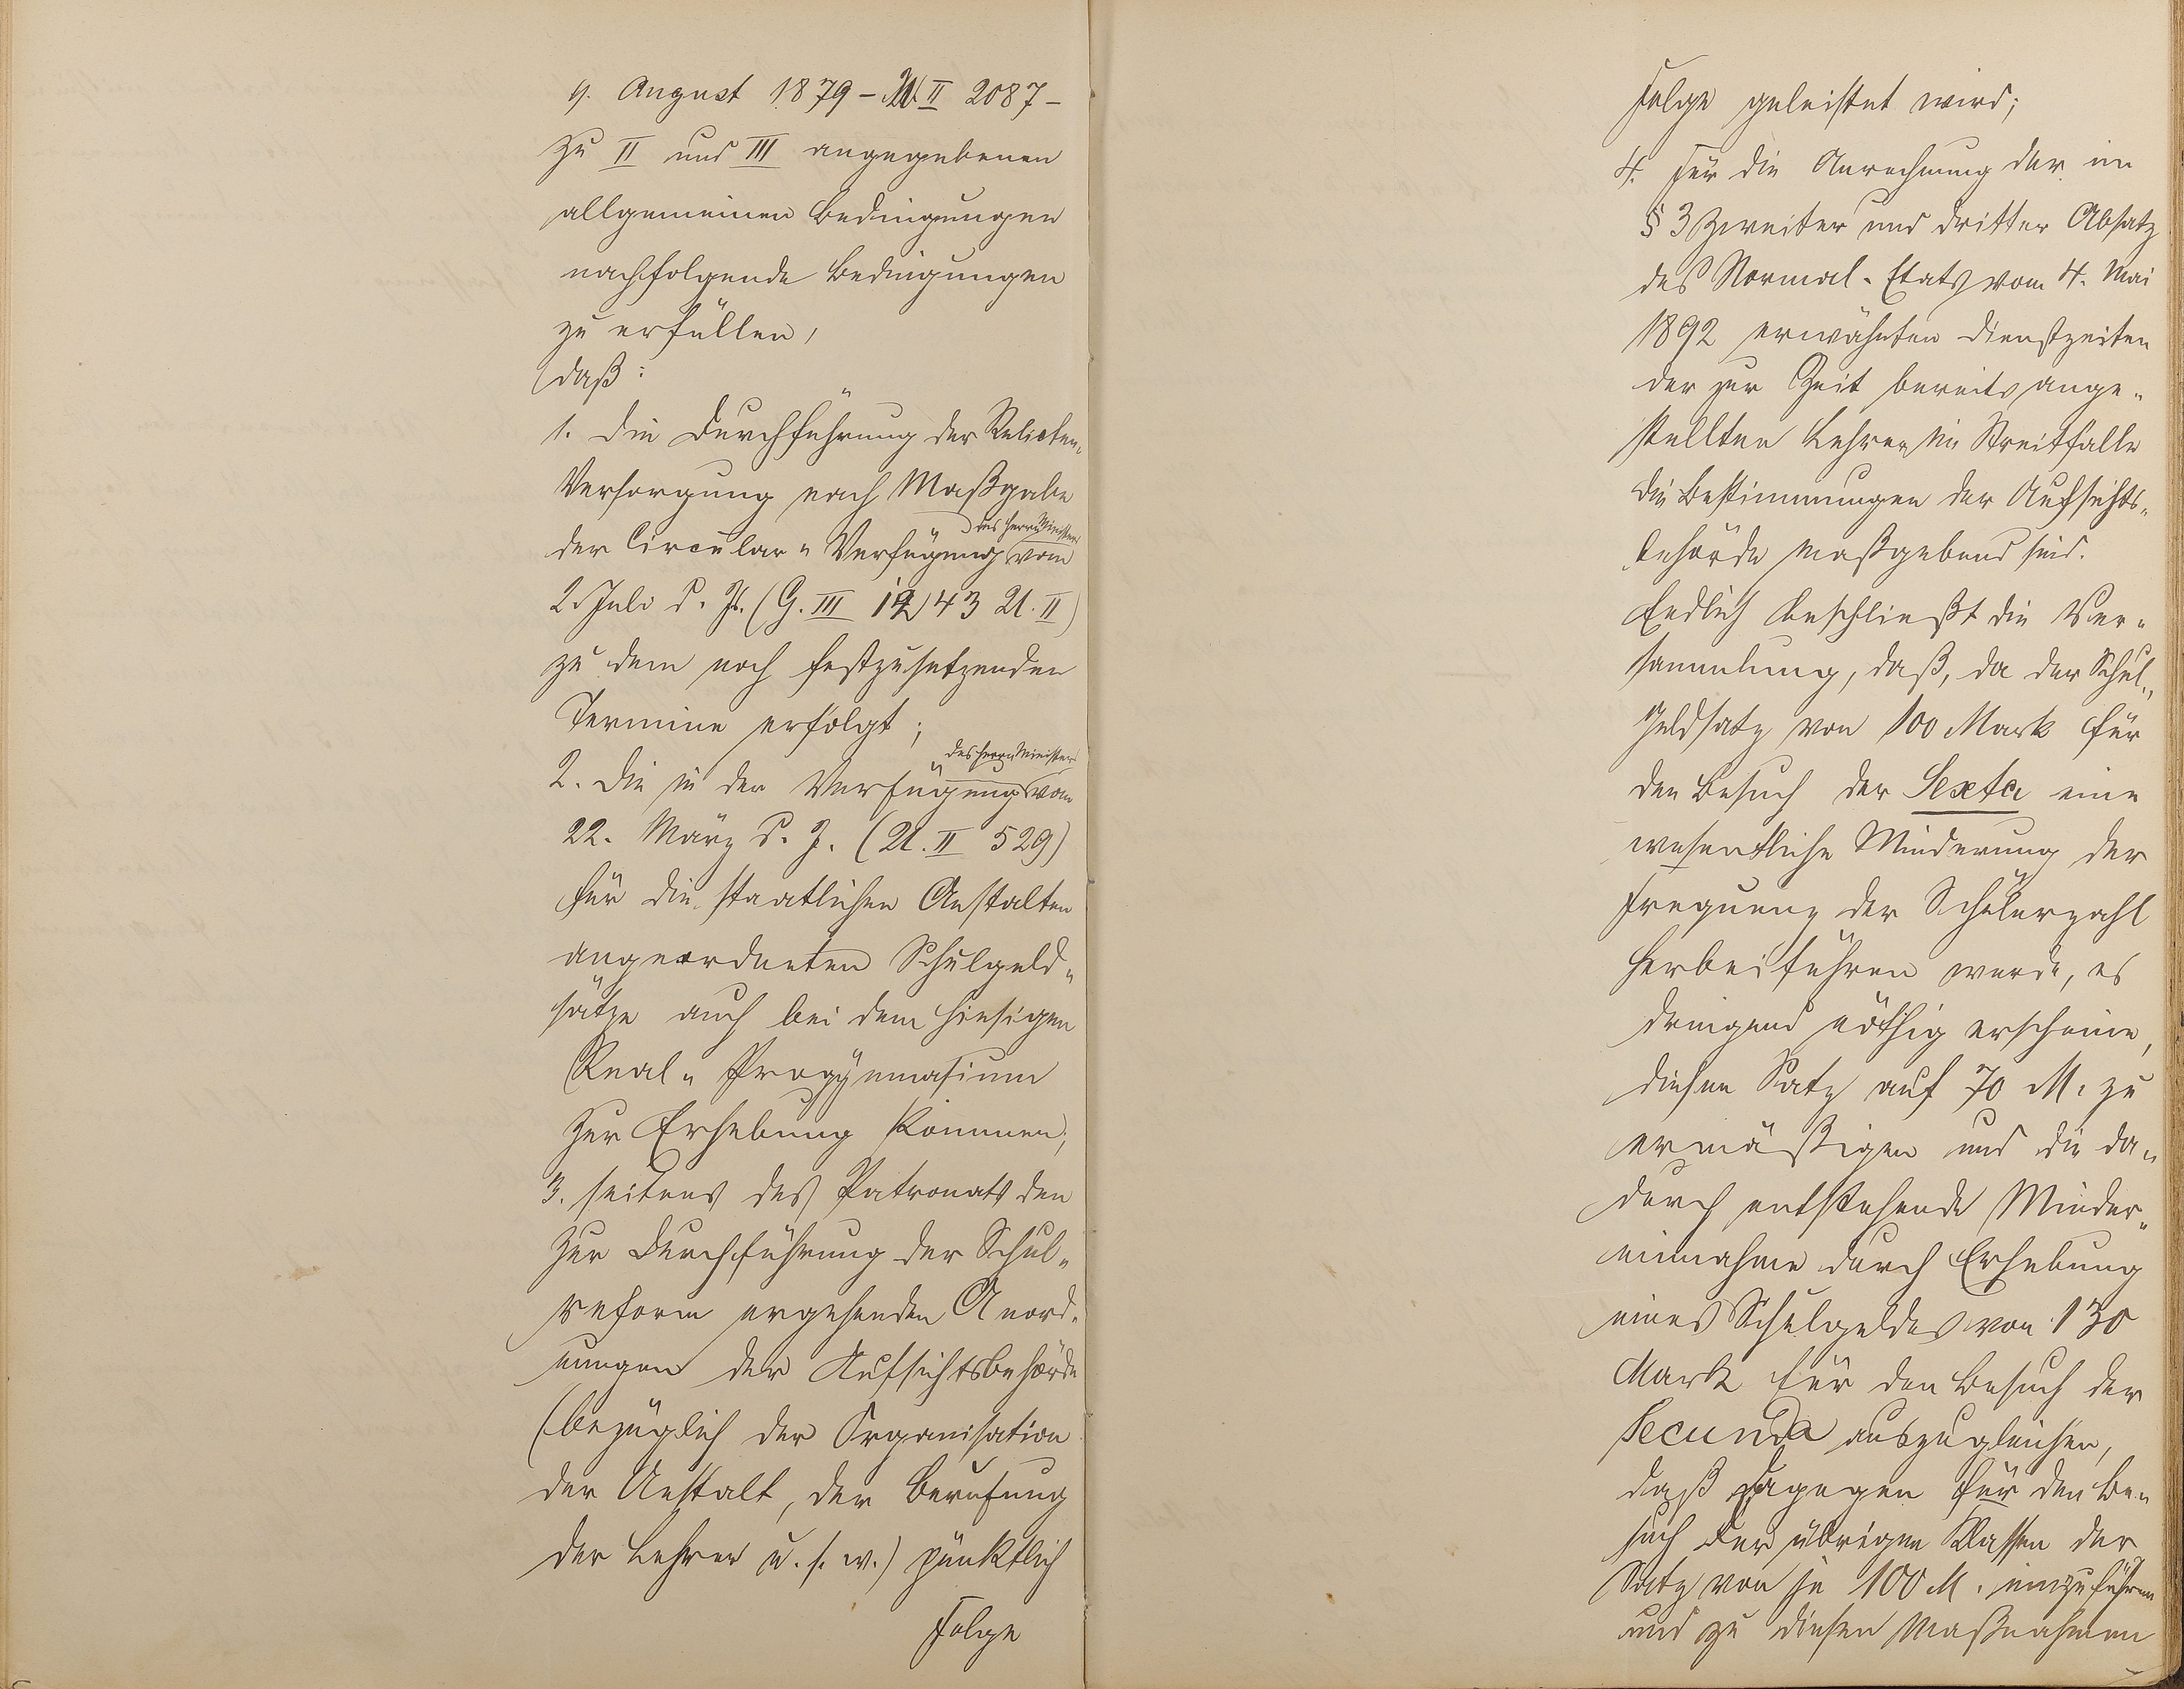 9. August 1879 – U. II 2087 –
zu II und III angegebenen
allgemeinen Bedingungen
nachfolgende Bedingungen
zu erfüllen,
daß:
1. die Durchführung der Relicten„
Versorgung nach Maßgabe
des Herrn Ministers
der Circular„Verfügung vom
2. Juli d. Js. (G. III 1243 U. II)
zu dem noch festzusetzenden
Termine erfolgt;
des Herrn Ministers
2. die in der Verfügung vom
22. März d. J. (U. II 529)
für die staatlichen Anstalten
angeordneten Schulgeld„
sätze auch bei dem hiesigen
Real„Progymnasium
zur Erhebung kommen;
3. seitens des Patronats den
zur Durchführung der Schul„
reform ergehenden Anord„
nungen der Aufsichtsbehörde
(bezüglich der Organisation
der Anstalt, der Berufung
der Lehrer u. s. w.) pünktlich
Folge
Folge geleistet wird;
4. für die Anrechnung der im
§ 3 zweiter und dritter Absatz
des Normal-Etats vom 4. Mai
1892 erwähnten Dienstzeiten
der zur Zeit bereits ange„
stellten Lehrer im Streitfalle
die Bestimmungen der Aufsichts„
behörde maßgebend sind.
Endlich beschließt die Ver„
sammlung, daß, da der Schul„
geldsatz von 100 Mark für
den Besuch der Sexta eine
wesentliche Minderung der
Frequenz der Schülerzahl
herbeiführen werde, es
dringend nöthig erscheine,
diesen Satz auf 70 M. zu
ermäßigen und die da„
durch entstehende Minder„
einnahme durch Erhebung
eines Schulgeldes von 130
Mark für den Besuch der
Secunda auszugleichen,
daß dagegen für den Be„
such der übrigen Klassen der
Satz von je 100 M. einzuführen
und zu diesen Maßnahmen